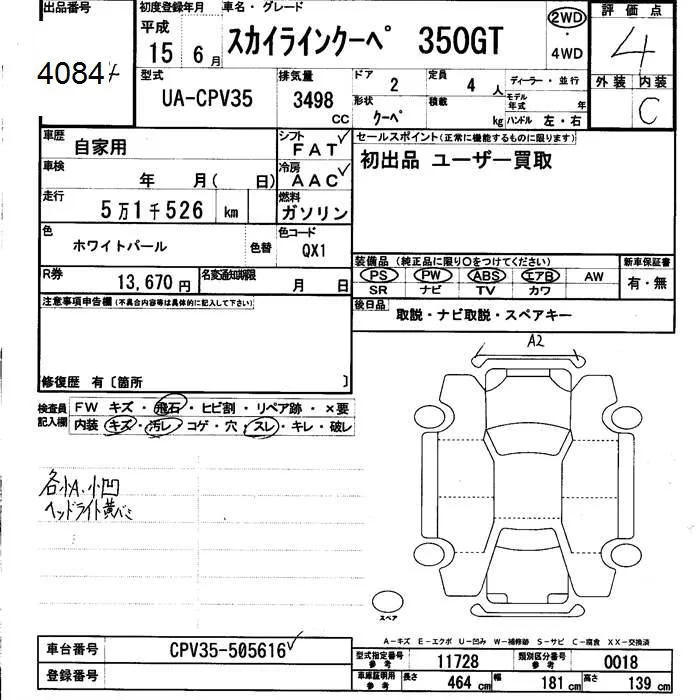 出品番号
4084
初度登録年月
平成
15 6月
車名・グレード
スカイラインクーペ 350GT
2WD
・
4WD
評価点
4
外装 内装
C
型式
UA-CPV35
排気量
3498
CC
ドア
2
定員
4 人
形状
クーペ
積載
kg
ディーラー・並行
モデル年式 年
ハンドル 左・右
車歴
自家用
シフト
FAT✓
車検
年 月( 日)
冷房
AAC✓
走行
5万1千526 km
燃料
ガソリン
色
ホワイトパール
色替
色コード
QX1
R券
13,670円
名変通知期限
月 日
セールスポイント(正常に機能するものに限ります)
初出品 ユーザー買取
装備品 (純正品に限り○をつけてください)
PS PW ABS エアB AW
SR ナビ TV カワ
新車保証書
有・無
後日品
取説・ナビ取説・スペアキー
注意事項申告欄(不具合内容等は具体的に記入して下さい)
修復歴 有〔箇所 〕
検査員
記入欄
FW キズ・飛石・ヒビ割・リペア跡・×要
内装 キズ・汚レ・コゲ・穴・スレ・キレ・破レ
各小A、小凹
ヘッドライト黄バミ
A2
スペア
A-キズ E-エクボ U-凹み W-補修跡 S-サビ C-腐食 XX-交換済
車台番号
CPV35-505616✓
登録番号
型式指定番号
参考
11728
類別区分番号
参考
0018
車庫証明用
参考
長さ 464 cm 幅 181 cm 高さ 139 cm